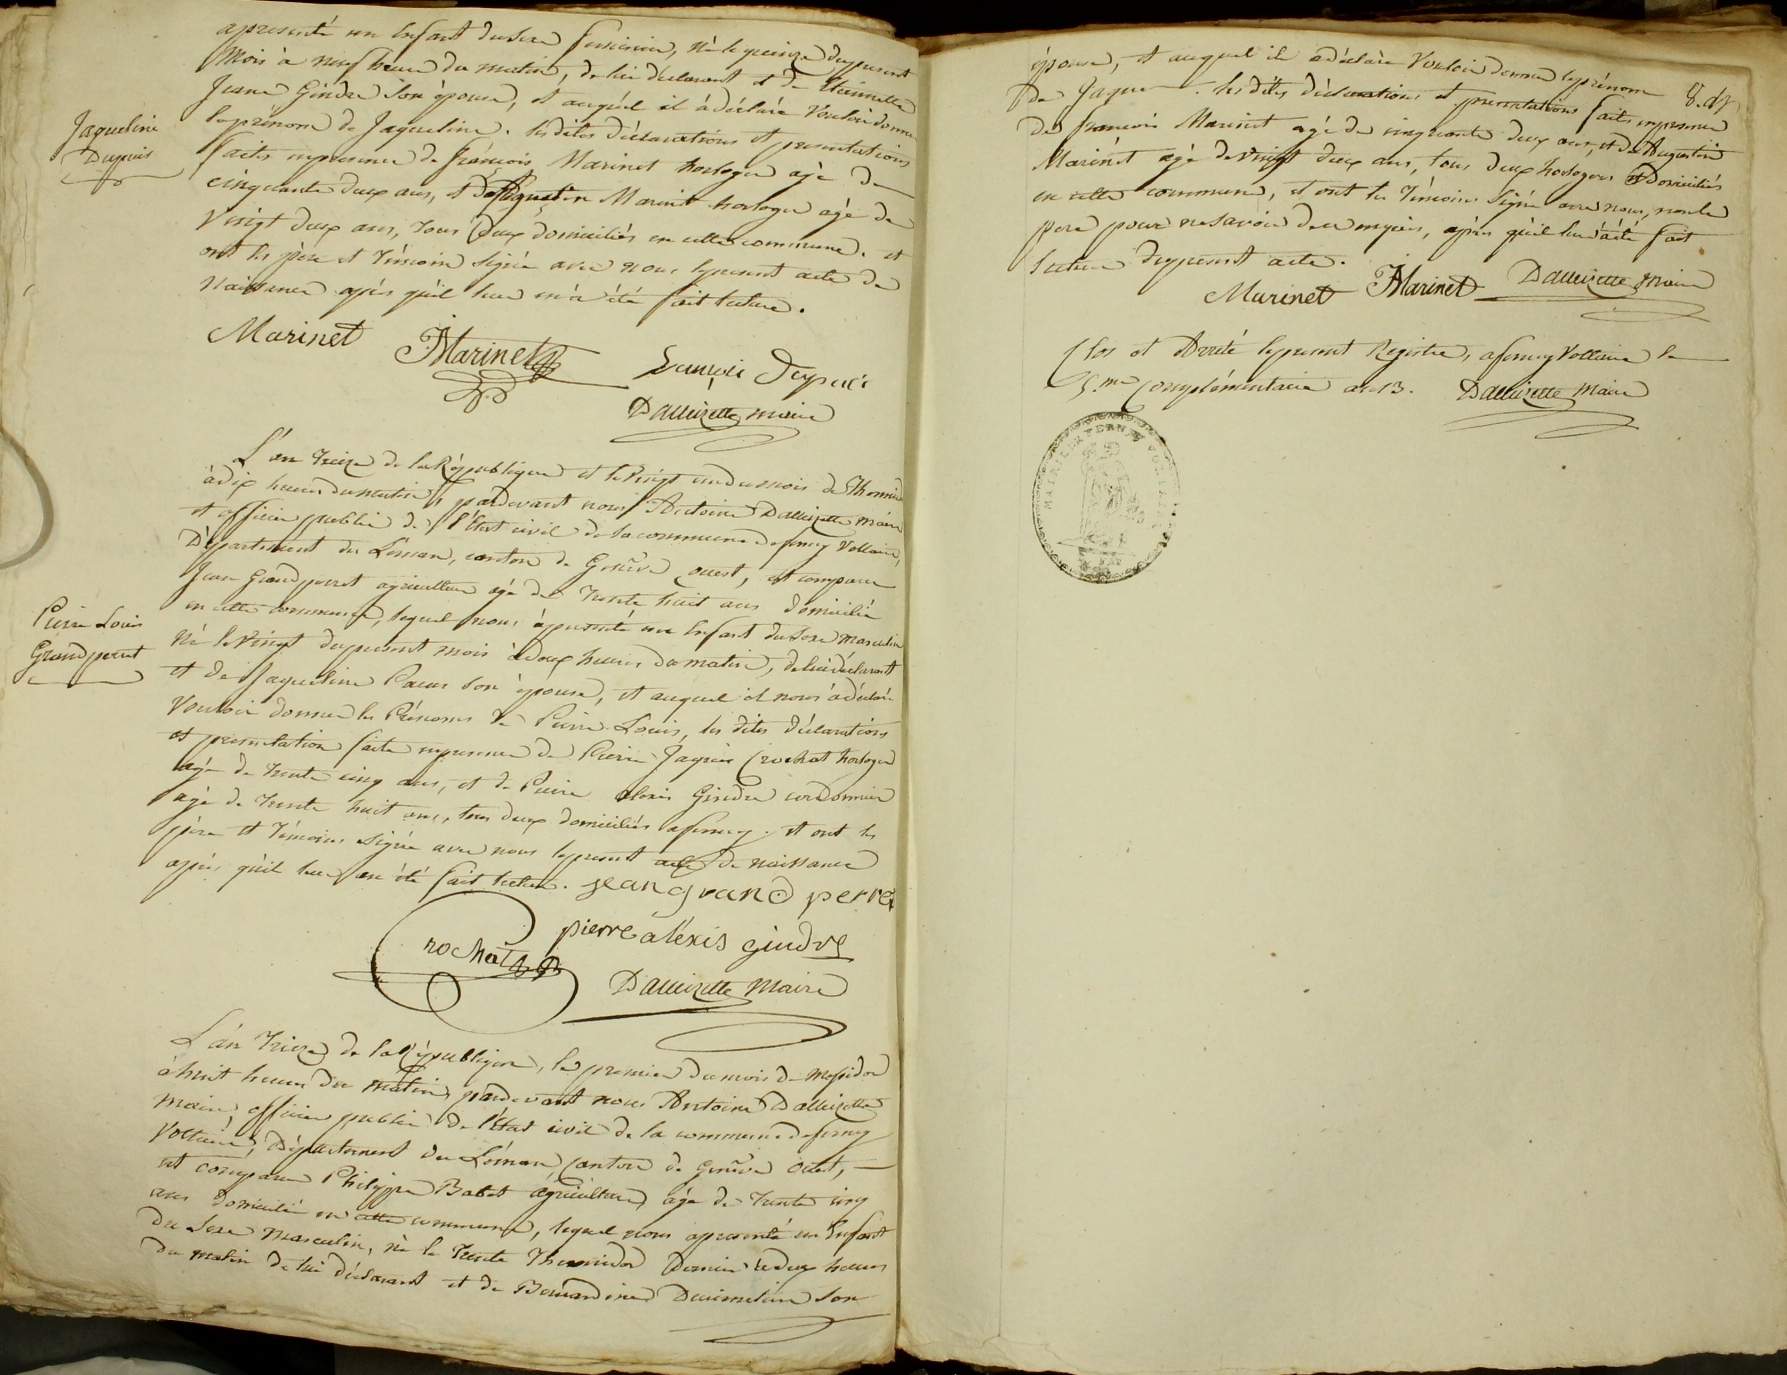 apresenté un Enfant du Sexe feminin, né le quinze du present
mois à neuf heure du matin, de lui déclarant et de Etiennette
Jeane Gindre Son épouse, et auquel il à déclaré Vouloir donner
le prénom de Jaqueline. les dites déclarations et presentations
faites en presence de françois Marinet horloger agé de
cinquante deux ans, et de Augustin Marinet horloger agé de
Vingt deux ans, Tous deux domiciliés en cette commune. et
ont les père et Témoins Signé avec nous le present acte de
Naissance après qu'il leur en à été fait lecture.
Jaqueline
Dupuis
Marinet
Marinet
Dallizette maire
L'an Treize de la République et le Vingt un du mois de Thermidor
à dix heures du matin pardevant nous Antoine Dallizette maire
et officier public de l'Etat civil de la commune de ferney Voltaire,
Département du Léman, canton de Genêve ouest, est comparu
Jean Grandperret agriculteur agé de Trente huit ans domicilié
en cette commune, lequel nous àpresenté un Enfant du Sexe masculin
Né le Vingt du present mois à deux heures du matin, de lui déclarant
et de Jaqueline Son épouse, et auquel il nous à déclaré
Vouloir donner les Prénoms de Pierre Louis, les dites déclarations
et presentation faite en presence de Pierre Jaques Crochat horloger
agé de Trente cinq ans, et de Pierre alexis Gindre cordonnier
agé de Trente huit ans, tous deux domiciliés a ferney. et ont les
père et Témoins Signé avec nous le present acte de naissance
après qu'il leur en été fait lecture. jean grand perret
Pierre Louis
Grandperret
pierre alexis gindre
Crochat
Dallizette Maire
L'an Treize de la République, le premier du mois de
à huit heures du matin pardevant nous Antoine Dallizette
maire, officier public de l'Etat civil de la commune de ferney
Voltaire, Département du Léman, Canton de Genêve Ouest,
est comparu Philippe agriculteur agé de Trente cinq
ans domicilié en cette commune, lequel nous apresenté un Enfant
du Sexe Masculin, né le Trente Thermidor Dernier à deux heures
du matin de lui déclarant et de Bernardine Son
épouse, et auquel il à déclaré Vouloir donner le prénom
de Jaques. les dites déclarations et presentations faites en presence
de françois Marinet agé de cinquante deux ans, et de Augustin
Marinet agé de vingt deux ans, tous deux horlogers et Domiciliés
en cette commune, et ont les Témoins Signé avec nous, non le
pere pour ne savoir de ce enquis, après qu'il leur à été fait
lecture du present acte.
Marinet Marinet Dallizette Maire
Clos et Arreté le present Registre, a ferney Voltaire le
5.me Complémentaire an 13. Dallizette Maire